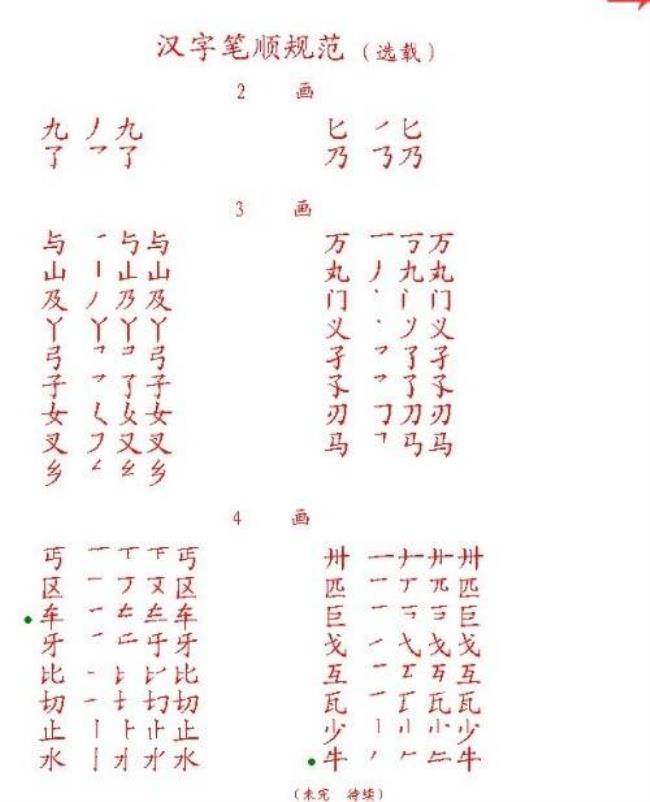 汉字笔顺规范(选载)
2 画
九 丿 九 匕 ㇒ 匕
了 乛 了 乃 ㇋ 乃
3 画
与 一 与 与 万 一 丆 万
山 丨 止 山 丸 丿 九 丸
及 丿 乃 及 门 丶 门
丫 丫 丫 丫 义 丶 义
弓 ㇕ 弓 孑 乛 了 孑
子 乛 了 子 孓 乛 了 孓
女 ㄑ 女 女 刃 ㇆ 刀 刃
叉 ㇇ 又 叉 马 ㇕ 马 马
乡 ㄥ 乡
4 画
丐 一 丅 下 丐 卅 一 卅
区 一 丆 区 匹 一 丆 兀 匹
车 一 车 巨 一 巨
牙 一 二 牙 戈 一 弋 戈 戈
互 一 互
比 一 比
瓦 一 瓦
切 一 七 切 切
止 丨 ⺊ 止 少 丨 小 少
水 亅 水 牛 丿 𠂉 牛
(未完 待续)